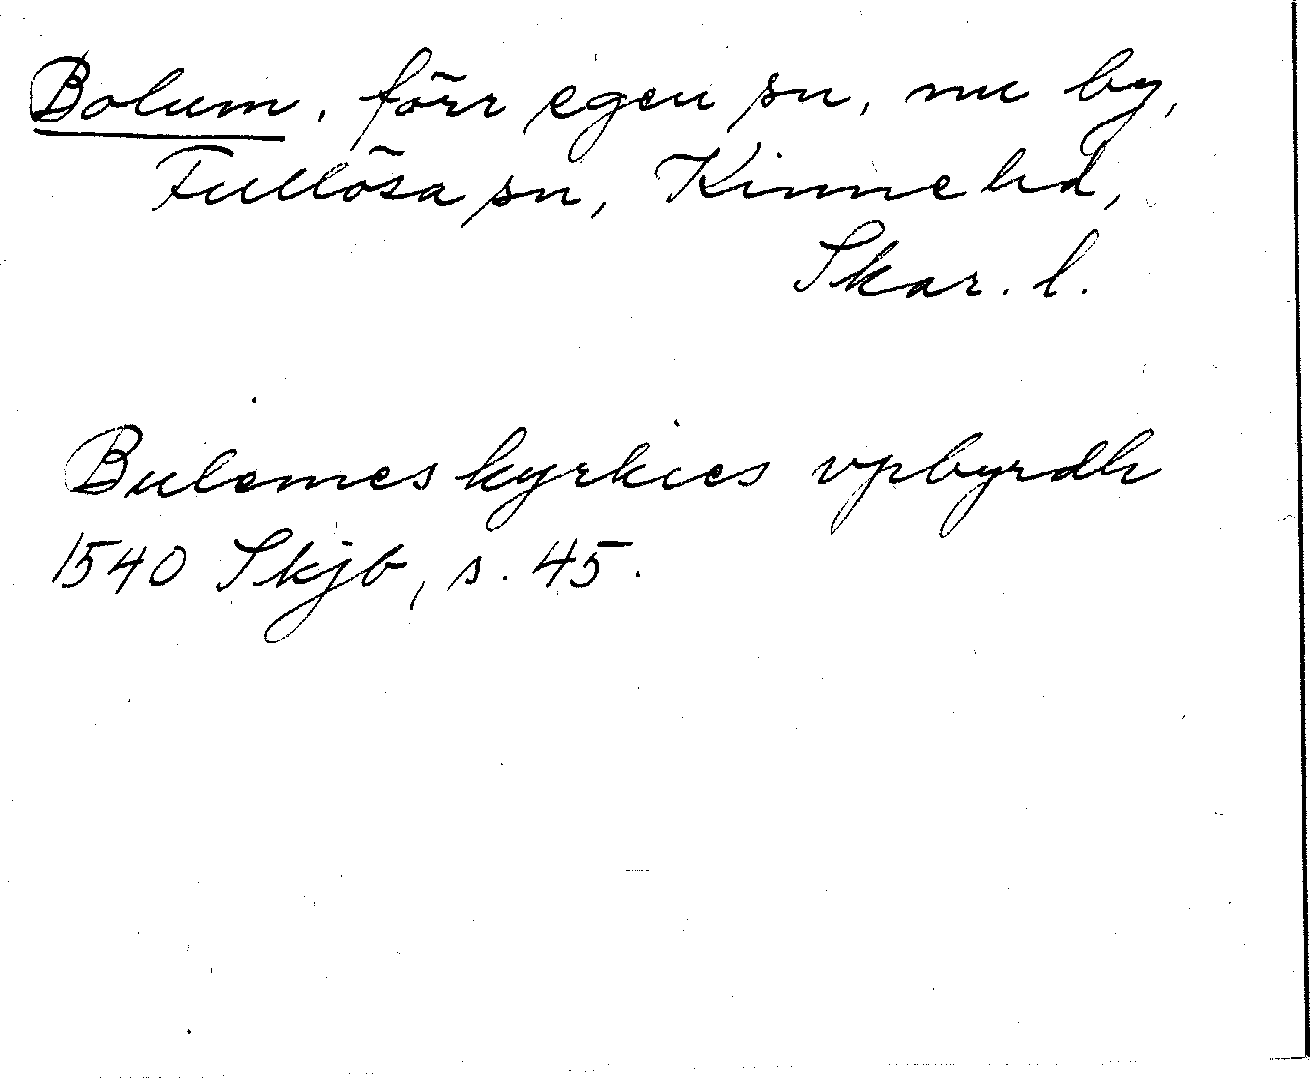 Bolum, förr egen sn, nu by,
Fullösa sn, Kinne hd,
Skar. l.
Bulemes kyrkies vpbyrdh
1540 Skjb, s. 45.